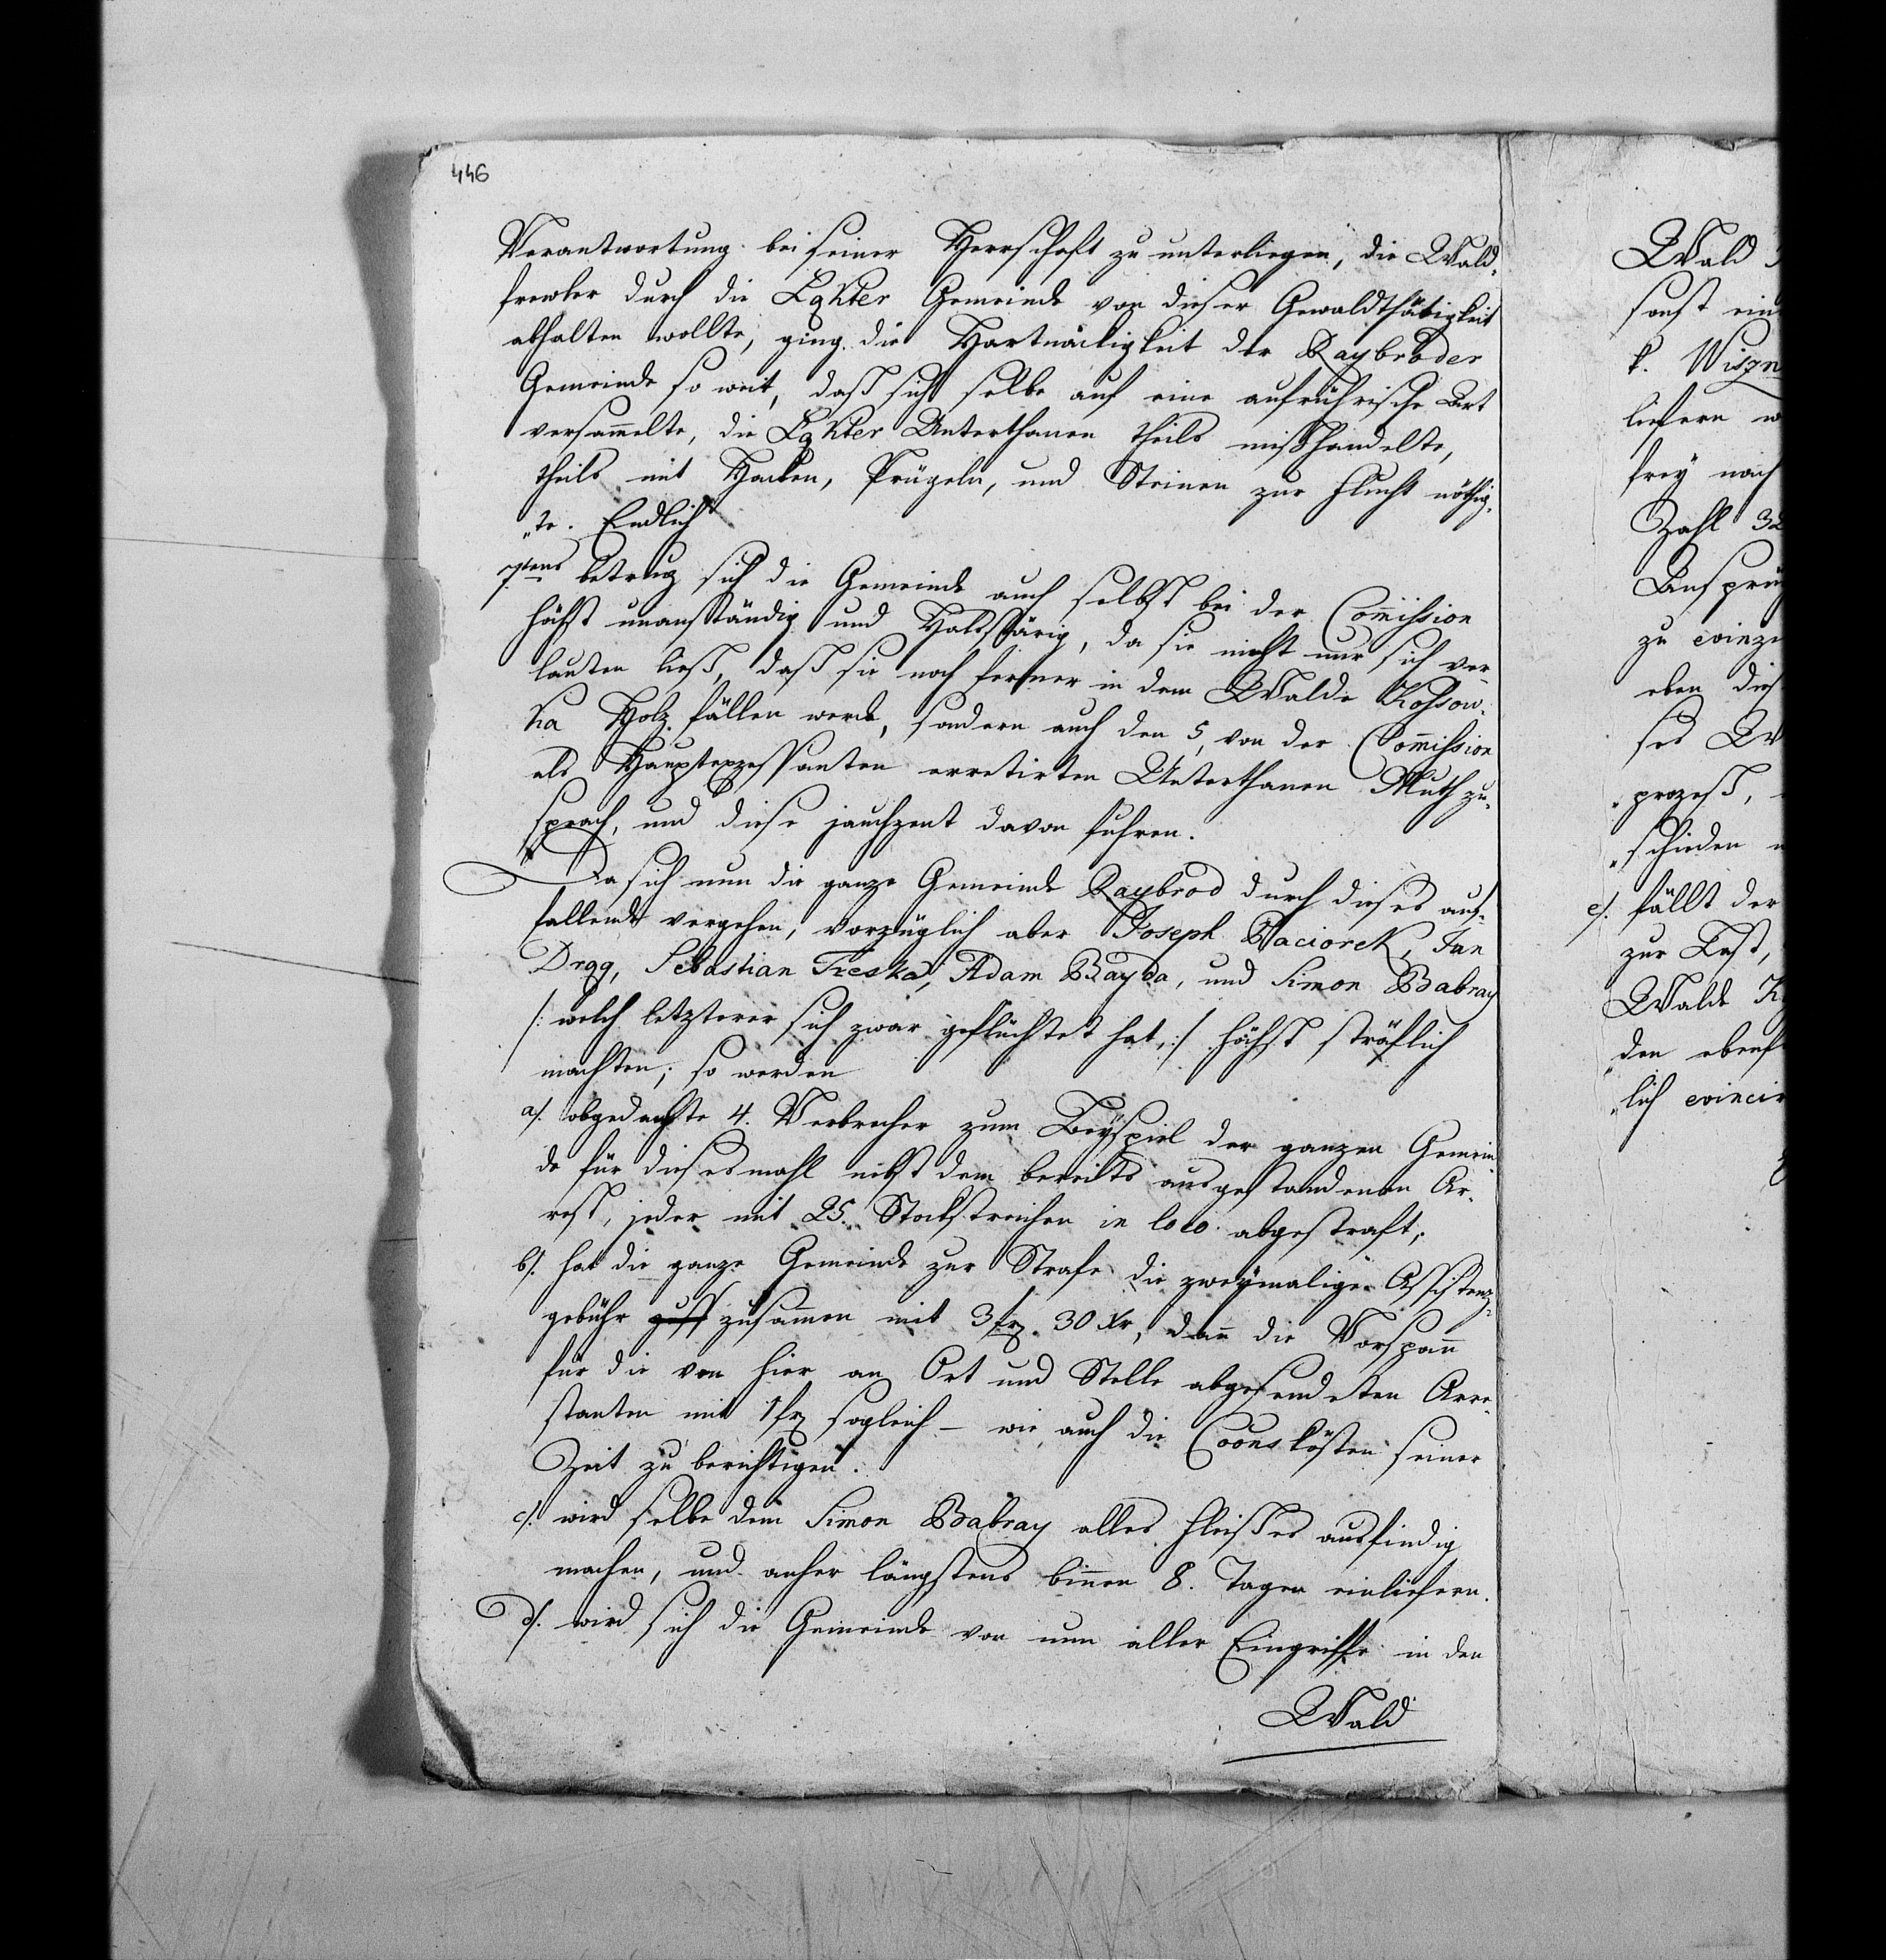 446
Verantwortung bei seiner Herrschaft zu unterliegen, die Wald-
frevler durch die Łąkter Gemeinde von dieser Gewaldthätigkeit
abhalten wollte, ging die Hartnäkigkeit der Raybroder
Gemeinde so weit, daß sich selbe auf eine aufrührische Art
versam̅elte, die Łąkter Unterthanen theils mißhandelte,
theils mit Haken, Prügeln, und Steinen zur Flucht nöthig-
„te. Endlich
7tens betrug sich die Gemeinde auch selbst bei der Com̅ission
höchst unanständig und Halsstärig, da sie nicht nur sich ver-
lauten ließ, daß sie noch ferner in dem Walde Kossow-
ka Holz fällen werde, sondern auch den 5, von der Com̅ission
als Hauptexzessanten arretirten Unterthanen Muth zu-
sprach, und diese jauchzent davon fuhren.
Da sich nun die ganze Gemeinde Raybrod durch dieses auf-
fallende vergehen, vorzüglich aber Joseph Paciorek, Jan
Drąg, Sebastian Treska, Adam Bayda, und Simon Babray
/: welch letzterer sich zwar geflüchtet hat, :/ höchst sträflich
machten; so werden
a/. obgedachte 4. Verbrecher zum Beÿspiel der ganzen Gemein-
de für diesesmahl nebst dem bereits ausgestandenen Ar-
rest, jeder mit 25 Stockstreichen in loco abgestraft;
b/. hat die ganze Gemeinde zur Strafe die zweÿmalige Assistenz-
gebühr zusam̅en mit 3 fr. 30 Xr, dan̅ die Vorspan̅
für die von hier an Ort und Stelle abgesendeten Arre-
stanten mit 1 fr sogleich – wie auch die Coonskösten seiner
Zeit zu berichtigen.
c/. wird selbe dem Simon Babray alles Fleißes ausfindig
machen, und anher längstens bin̅en 8. Tagen einliefern.
d/. wird sich die Gemeinde von nun aller Eingriffe in den
Wald
Wald
sonst ein
k. Wisz
liefern
freÿ nach
Zahl 32
Ansprü
zu evinzi
eben dies
ses
prozeß,
schieden
e/. fällt der
zur Last,
Walde
den ebenf
„lich evincir